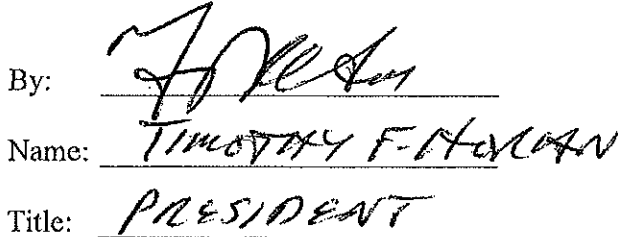 By:
Name: TIMOTHY F. HORAN
Title: PRESIDENT